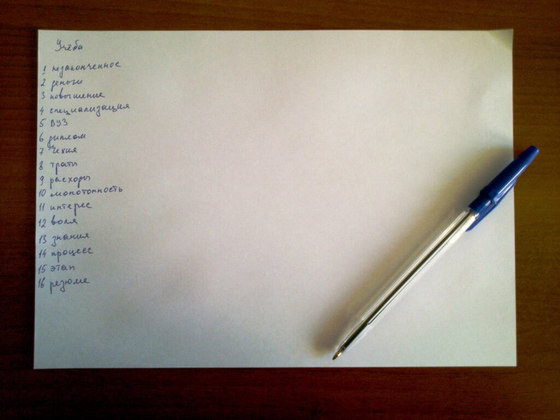 Учёба
1 незаконченное
2 деньги
3 повышение
4 специализация
5 ВУЗ
6 диплом
7 Чехия
8 траты
9 расходы
10 монотонность
11 интерес
12 воля
13 знания
14 процесс
15 этап
16 резюме